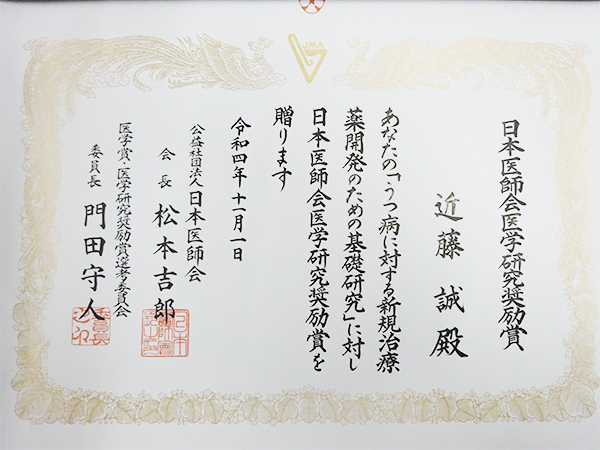 JMA
日本医師会医学研究奨励賞
近藤誠殿
あなたの「うつ病に対する新規治療
薬開発のための基礎研究」に対し
日本医師会医学研究奨励賞を
贈ります
令和四年十一月一日
公益社団法人日本医師会
会長 松本吉郎
医学賞・医学研究奨励賞選考委員会
委員長 門田守人